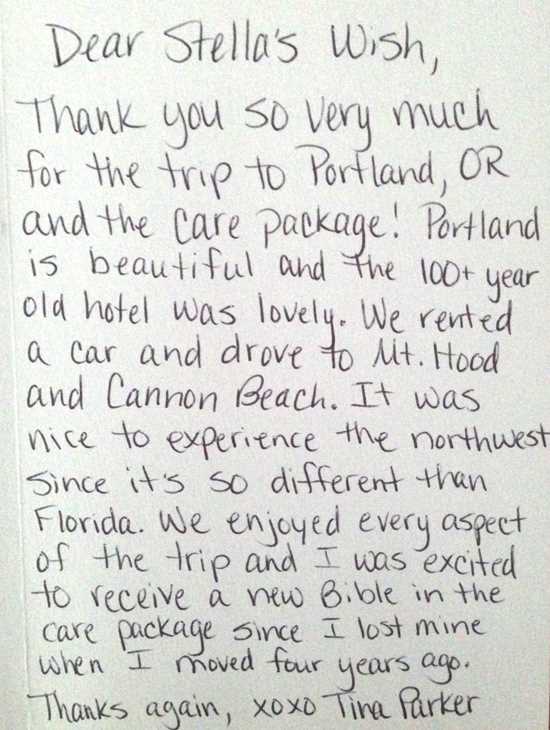 Dear Stella's Wish,
Thank you so very much
for the trip to Portland, OR
and the care package! Portland
is beautiful and the 100+ year
old hotel was lovely. We rented
a car and drove to Mt. Hood
and Cannon Beach. It was
nice to experience the northwest
since it's so different than
Florida. We enjoyed every aspect
of the trip and I was excited
to receive a new Bible in the
care package since I lost mine
when I moved four years ago.
Thanks again, xoxo Tina Parker